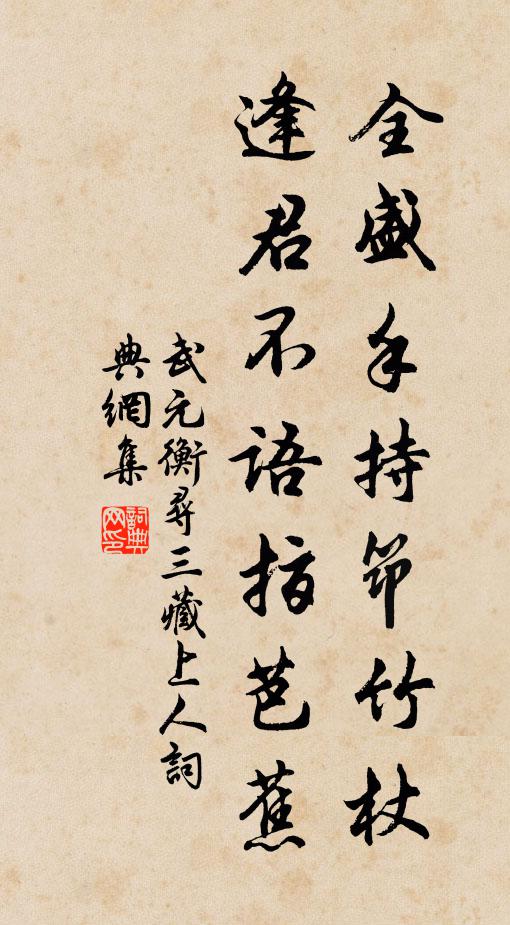 全盛手持筇竹杖
逢君不語指芭蕉
武元衡尋三藏上人詞
典網集
詞典
网印